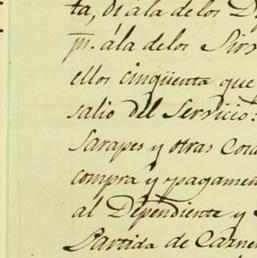 ta, ói ála de los D
pn. ála de los Sirs
ellos cinqüenta que
salio del Servicio:
Sarapes y otras Cosa
compra y pagamen
al Dependiente y
Partida de Carne